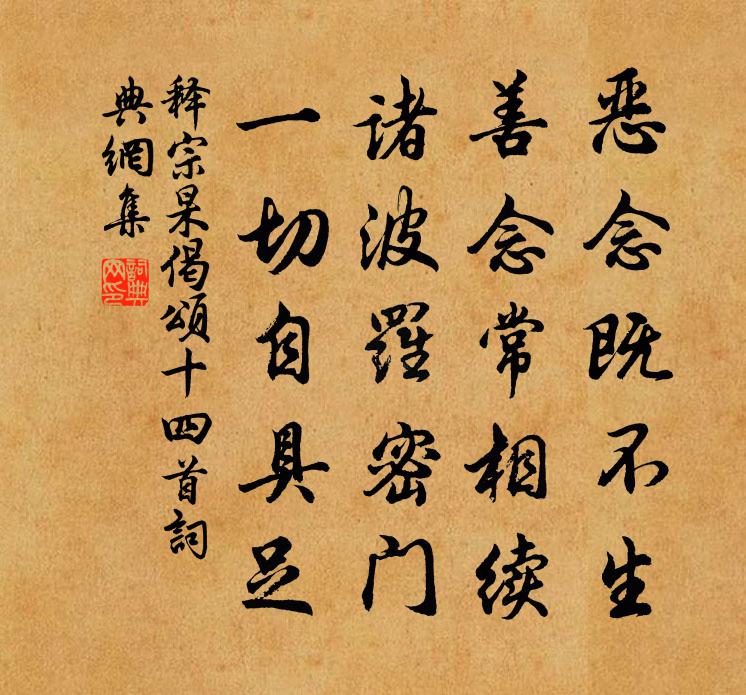 恶念既不生
善念常相续
诸波羅密门
一切自具足
释宗杲偈颂十四首詞
典網集
詞典
网印